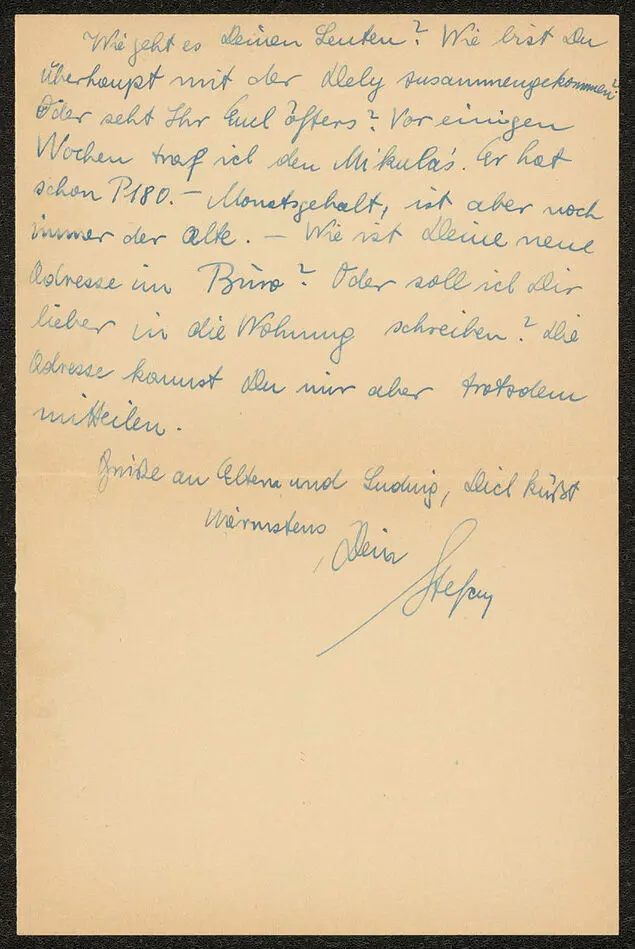 Wie geht es Deinen Leuten? Wie bist Du
überhaupt mit der Dely zusammengekommen?
Oder seht Ihr Euch öfters? Vor einigen
Wochen traf ich den Mikulás. Er hat
schon P180.– Monatsgehalt, ist aber noch
immer der alte. – Wie ist Deine neue
Adresse im Büro? Oder soll ich Dir
lieber in die Wohnung schreiben? Die
Adresse kannst Du mir aber trotzdem
mitteilen.
Grüße an Eltern und Ludwig, Dich küßt
wärmstens
, Dein
Stefan